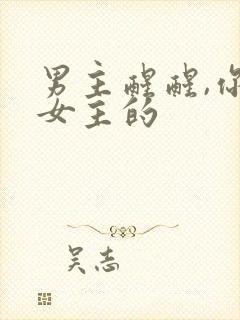 男主醒醒,你
女主的
吴志